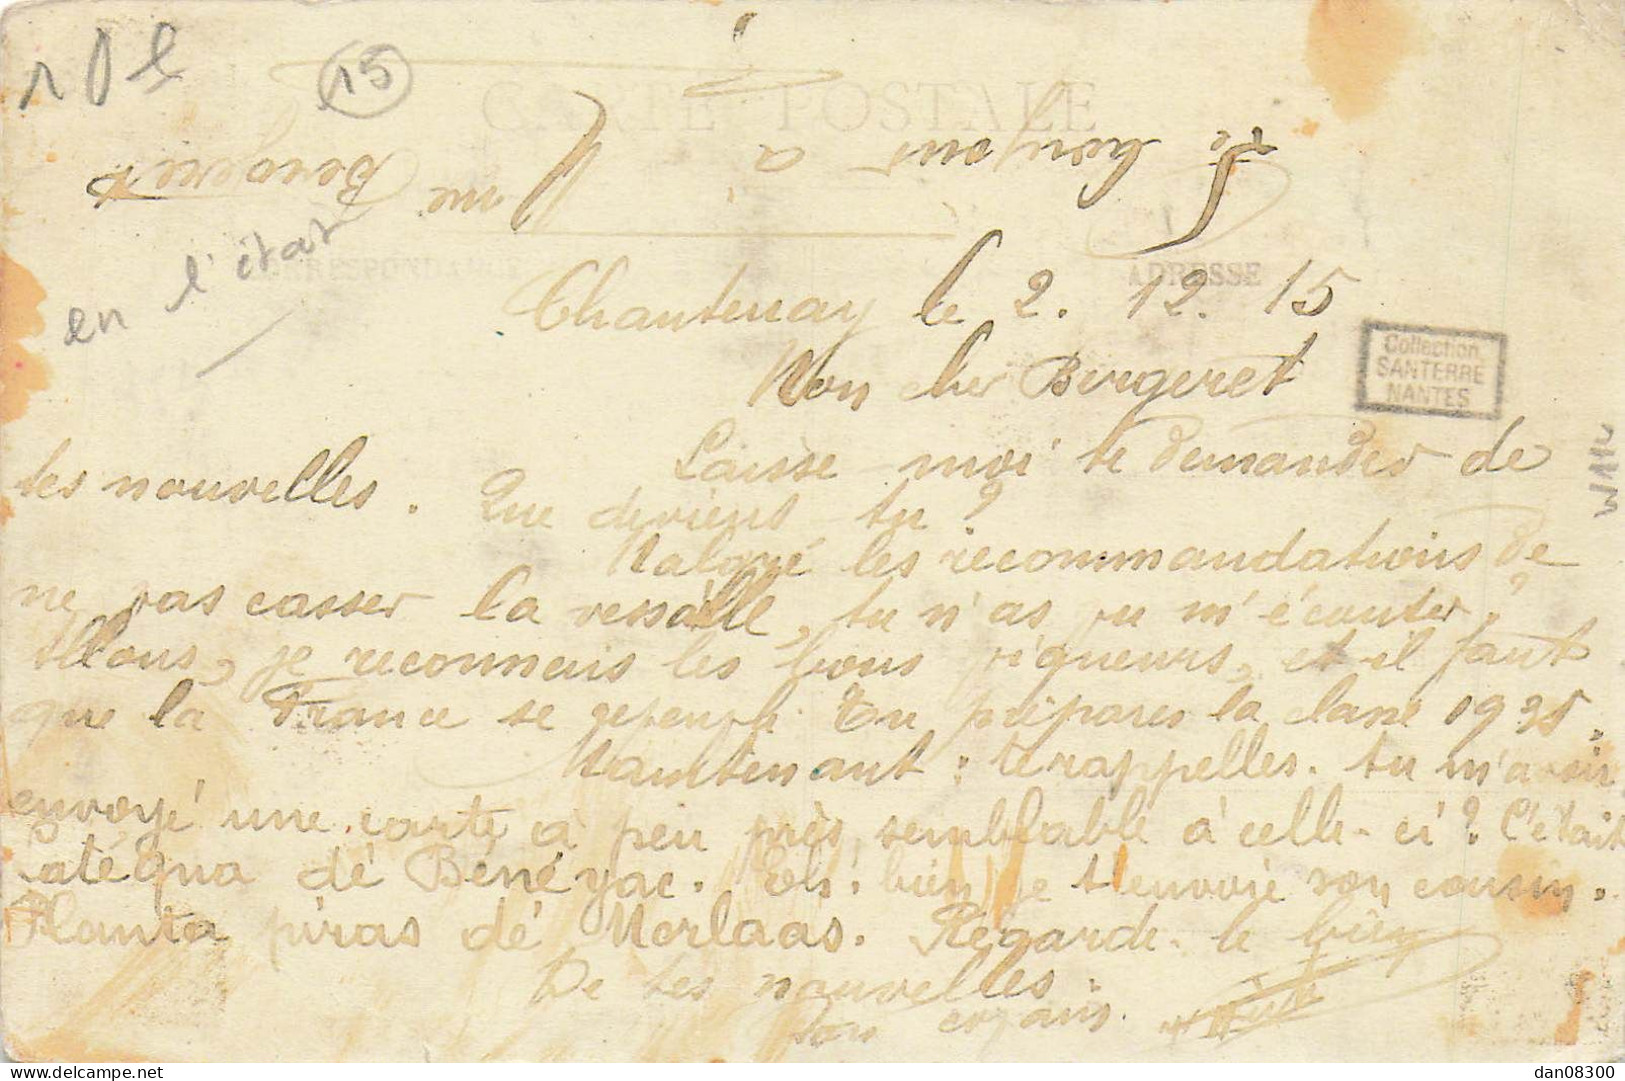 10 €
15
CARTE POSTALE
Le bonjour à
Mme Bergeret
en l'état
CORRESPONDANCE
ADRESSE
Chantenay le 2. 12. 15
Collection
SANTERRE
NANTES
Mon cher Bergeret
Laisse moi te demander de
tes nouvelles. Que deviens tu ?
Malgré les recommandations de
ne pas casser la vessalle, tu n'as pu m'écouter ?
Allons, je reconnais les bons vigneurs, et il faut
que la France se repeuple. Tu prépares la classe 1935.
Maintenant : te rappelles. tu m'avoir
envoyé une carte à peu près semblable à celle-ci ? C'était
Catéqua dé Bénéyac. Eh ! bien je t'envoie son cousin.
Planta piras dé Merlaas. Regarde. le bien
De tes nouvelles.
Ton copain.
W114
delcampe.net
dan08300